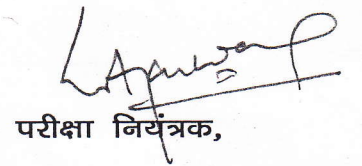 परीक्षा नियंत्रक,